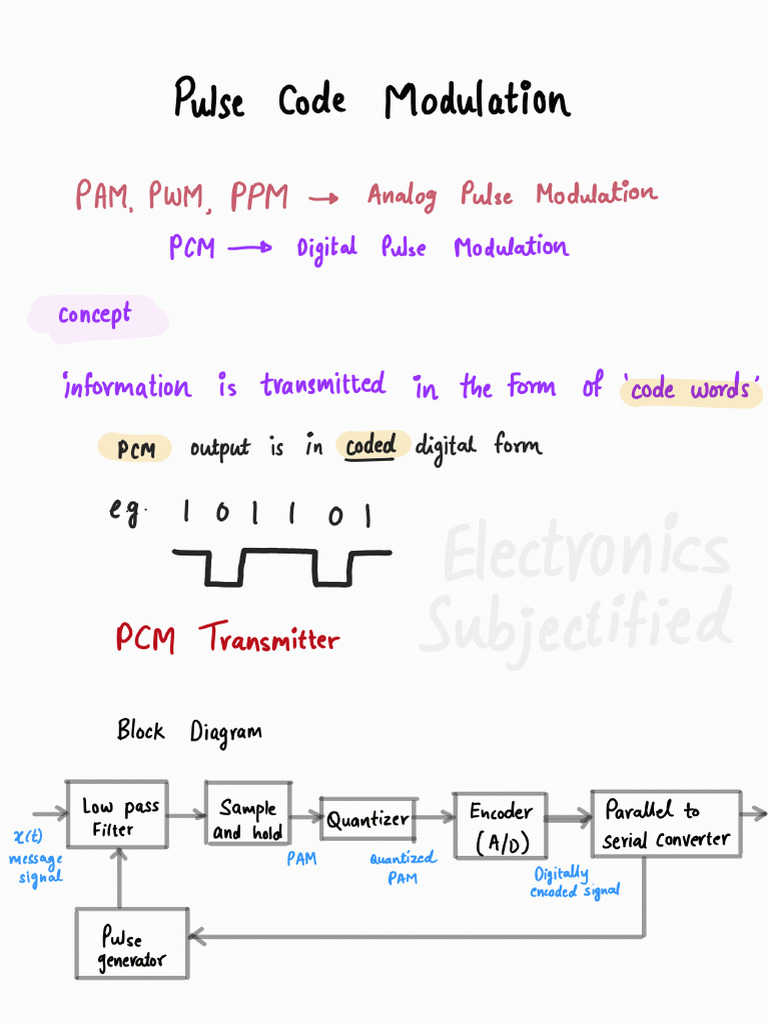 Pulse Code Modulation
PAM, PWM, PPM → Analog Pulse Modulation
PCM → Digital Pulse Modulation
Concept
information is transmitted in the form of 'code words'
PCM output is in coded digital form
eg. 1 0 1 1 0 1
Electronics
Subjectified
PCM Transmitter
Block Diagram
x(t)
message
signal
Low pass
Filter
Sample
and hold
PAM
Quantizer
Quantized
PAM
Encoder
(A/D)
Digitally
encoded signal
Parallel to
serial converter
Pulse
generator